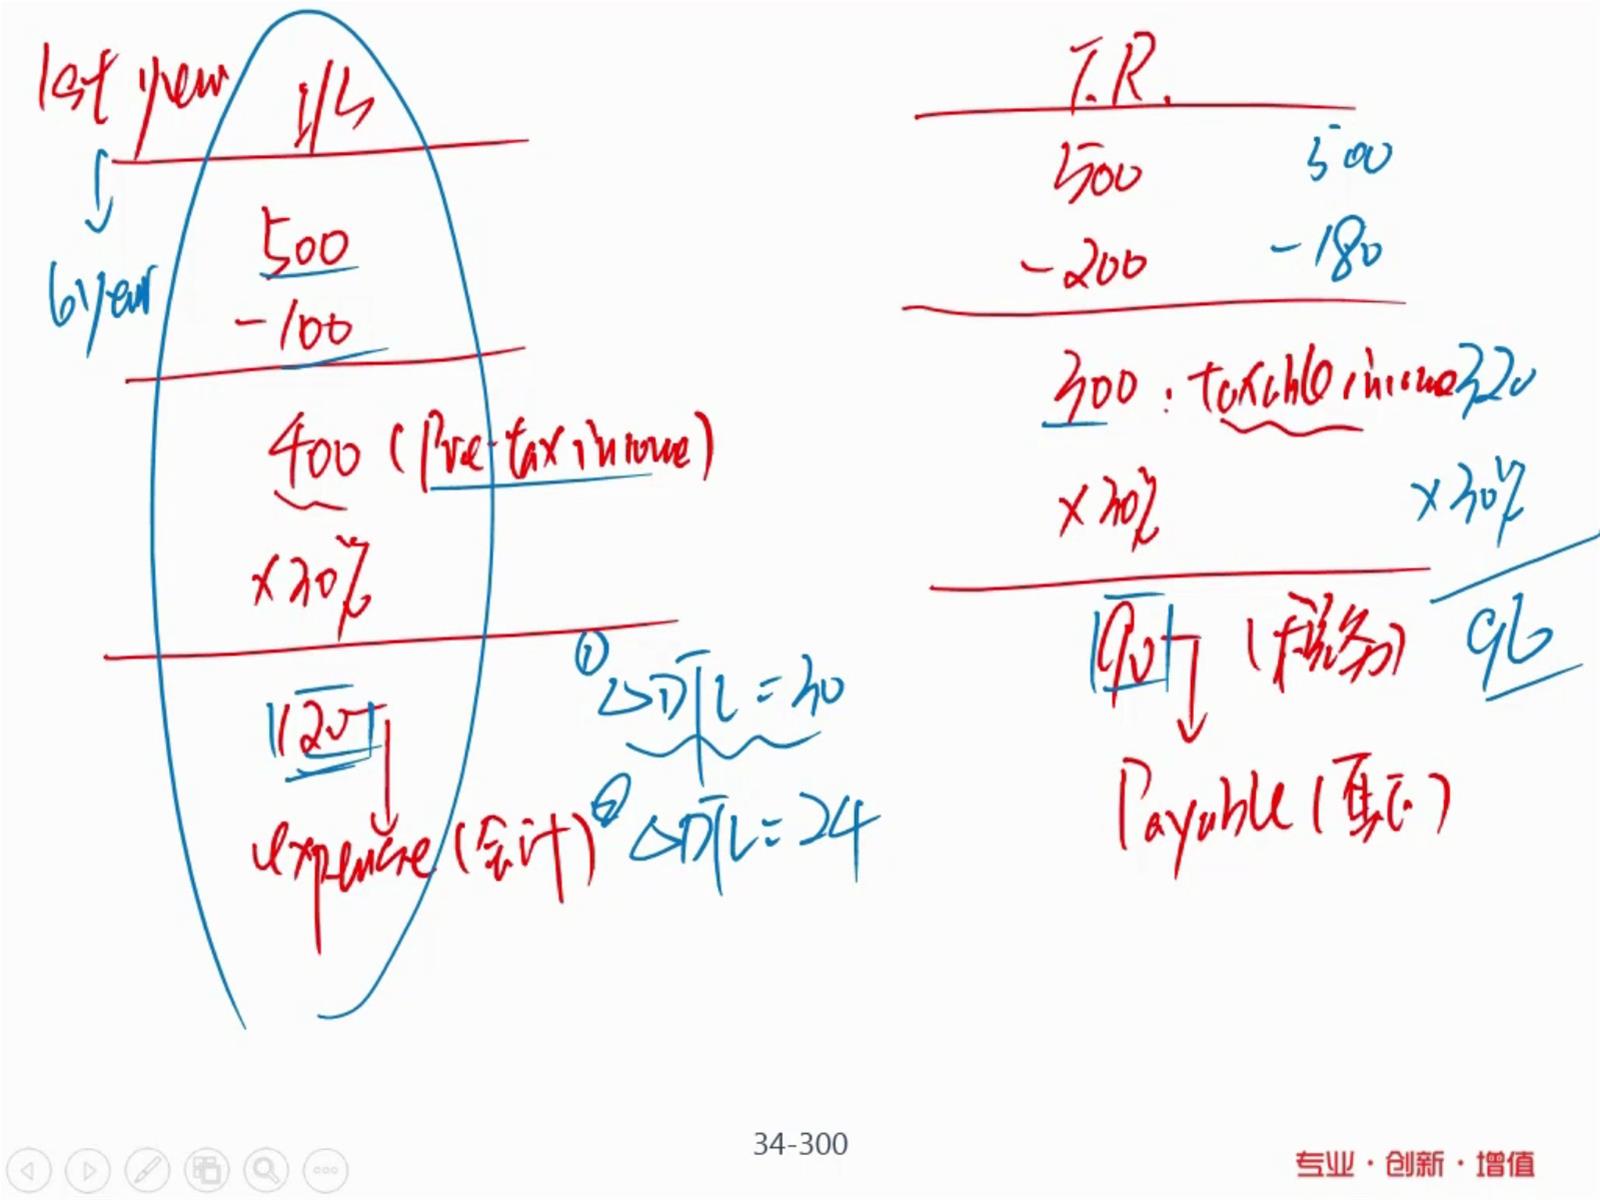 1st year
I/S
6 year
500
-100
400 (Pre-tax income)
×30%
120
expense (会计)
① △DTL = 30
② △DTL = 24
T.R.
500 500
-200 -180
300 : taxable income 320
×30% ×30%
90 (税务) 96
Payable (真正)
34-300
专业·创新·增值